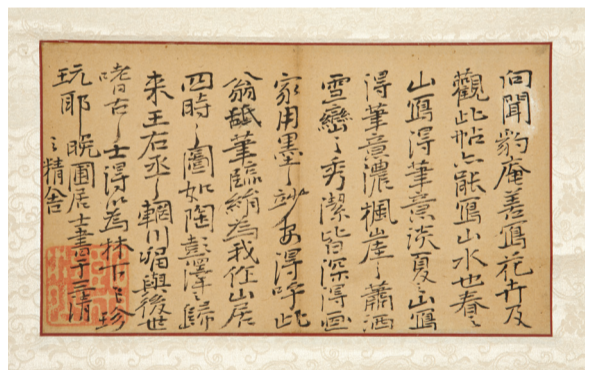 向聞豹庵善寫花卉及
觀此帖亦能寫山水也春之
山寫得筆意淡夏之山寫
得筆意濃楓崖之蕭洒
雪巒之秀潔皆深得画
家用墨之妙安得呼此
翁舐筆臨綃為我作山居
四時之圖如陶彭澤之歸
来王右丞之輞川留與後世
嗜古之士得以為林下之珍
玩耶 晚圃居士書于三清
之精舍